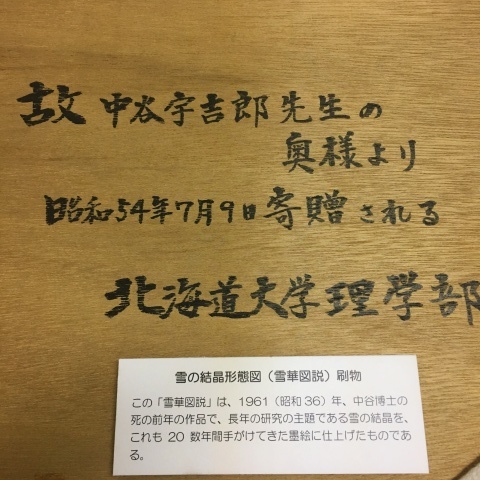 故 中谷宇吉郎 先生の
奥様より
昭和54年7月9日 寄贈される
北海道大学理学部
雪の結晶形態図（雪華図説）刷物
この「雪華図説」は、1961（昭和36）年、中谷博士の
死の前年の作品で、長年の研究の主題である雪の結晶を、
これも 20 数年間手がけてきた墨絵に仕上げたものであ
る。